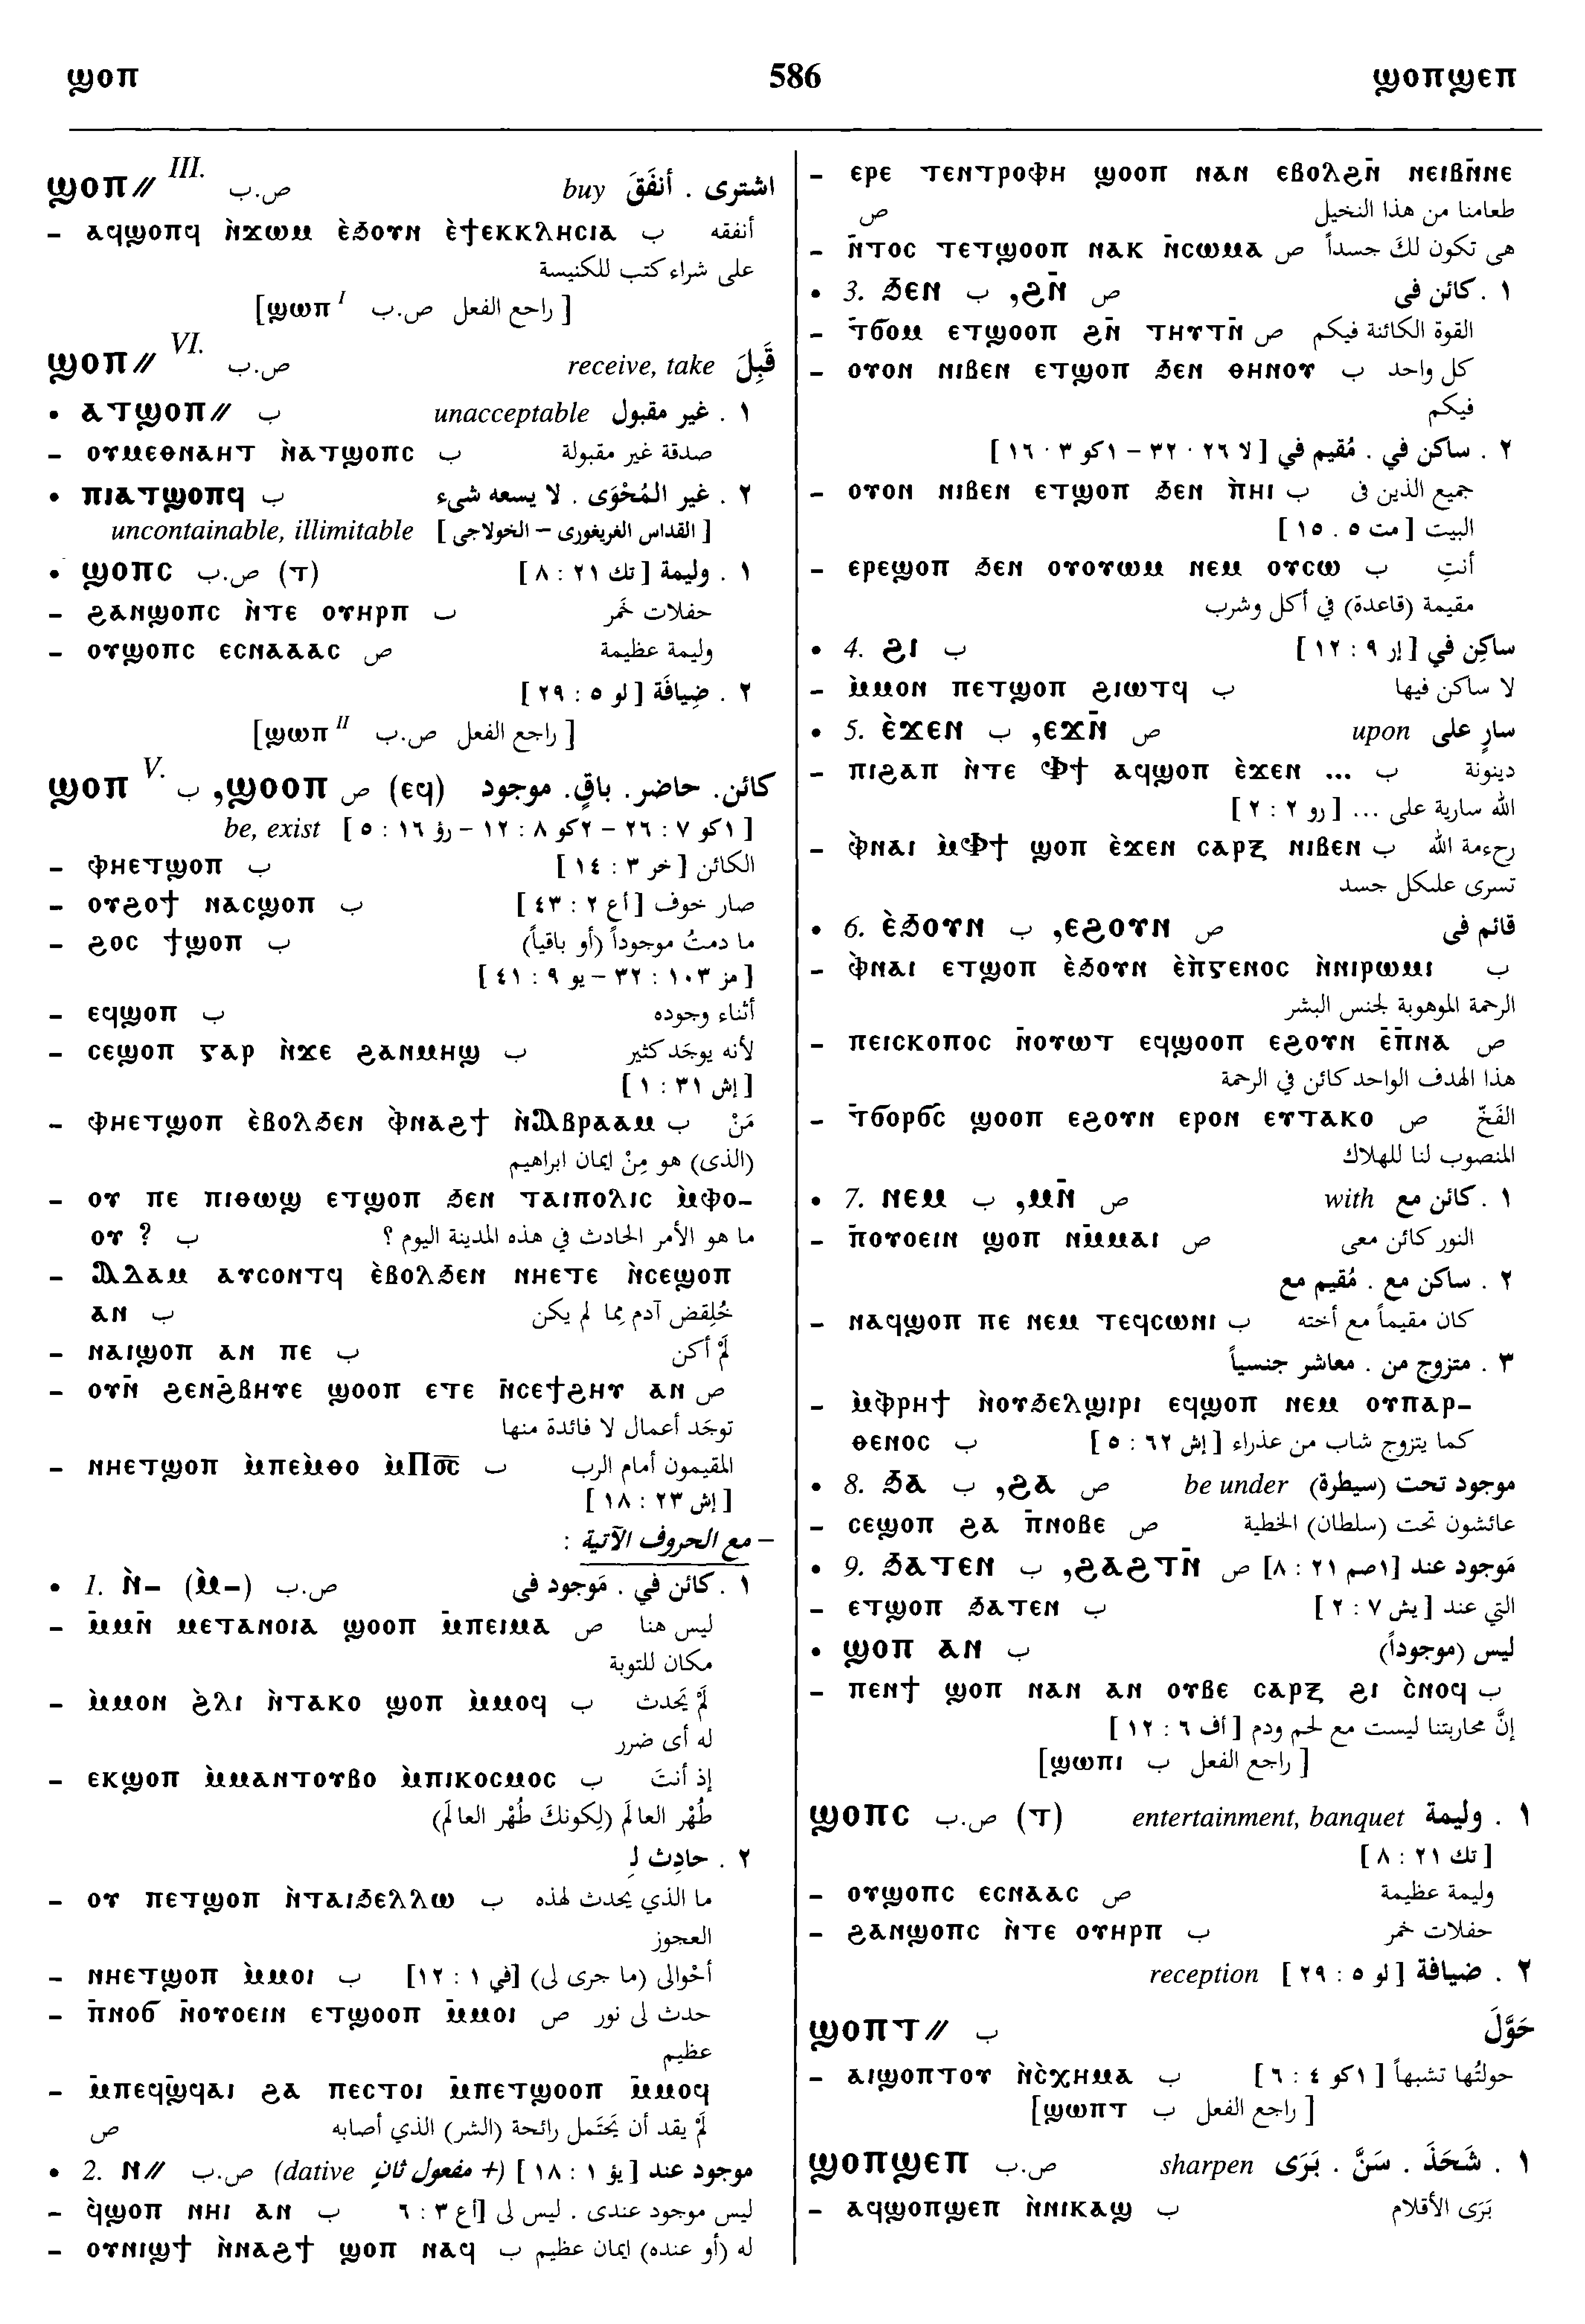 ϣⲟⲡ 586 ϣⲟⲡϣⲉⲡ
ϣⲟⲡ// III. ص.ب buy اشترى . أنفَقَ
– ⲁϥϣⲟⲡϥ ⲛ̀ϫⲱⲙ ⲉ̀ϧⲟⲩⲛ ⲉ̀ϯⲉⲕⲕⲗⲏⲥⲓⲁ ب أنفقه
على شراء كتب للكنيسة
[ راجع الفعل ص.ب ϣⲱⲡ I]
ϣⲟⲡ// VI. ص.ب receive, take قَبِلَ
• ⲁⲧϣⲟⲡ// ب unacceptable ١ . غير مقبول
– ⲟⲩⲙⲉⲑⲛⲁⲏⲧ ⲛ̀ⲁⲧϣⲟⲡⲥ ب صدقة غير مقبولة
• ⲡⲓⲁⲧϣⲟⲡϥ ب ٢ . غير المُحْوَى . لا يسعه شىء
uncontainable, illimitable [ القداس الغريغورى – الخولاجى ]
• ϣⲟⲡⲥ ص.ب (ⲧ) ١ . وليمة [ تك ٢١ : ٨ ]
– ϩⲁⲛϣⲟⲡⲥ ⲛ̀ⲧⲉ ⲟⲩⲏⲣⲡ ب حفلات خَمر
– ⲟⲩϣⲟⲡⲥ ⲉⲥⲛⲁⲁⲁⲥ ص وليمة عظيمة
٢ . ضِيافَة [ لو ٥ : ٢٩ ]
[ راجع الفعل ص.ب ϣⲱⲡ II]
ϣⲟⲡ V. ب ,ϣⲟⲟⲡ ص (ⲉϥ) كائن. حاضر. باقٍ. موجود
be, exist [ ١كو ٧ : ٢٦ – ٢كو ٨ : ١٢ – رؤ ١٦ : ٥ ]
– ⲫⲏⲉⲧϣⲟⲡ ب الكائن [ خر ٣ : ١٤ ]
– ⲟⲩϩⲟϯ ⲛⲁⲥϣⲟⲡ ب صار خوف [ أع ٢ : ٤٣ ]
– ϩⲟⲥ ϯϣⲟⲡ ب ما دمتُ موجوداً (أو باقياً)
[ مز ١٠٣ : ٣٢ – يو ٩ : ٤١ ]
– ⲉϥϣⲟⲡ ب أثناء وجوده
– ⲥⲉϣⲟⲡ ⲅⲁⲣ ⲛ̀ϫⲉ ϩⲁⲛⲙⲏϣ ب لأنه يوجَد كثير
[ إش ٣١ : ١ ]
– ⲫⲏⲉⲧϣⲟⲡ ⲉ̀ⲃⲟⲗϧⲉⲛ ⲫ̀ⲛⲁϩϯ ⲛ̀Ⲁⲃⲣⲁⲁⲙ ب مَنْ
(الذى) هو مِنْ إيمان ابراهيم
– ⲟⲩ ⲡⲉ ⲡⲓⲑⲱϣ ⲉⲧϣⲟⲡ ϧⲉⲛ ⲧⲁⲓⲡⲟⲗⲓⲥ ⲙ̀ⲫⲟ–
ⲟⲩ ? ب ما هو الأمر الحادث في هذه المدينة اليوم ؟
– Ⲁⲇⲁⲙ ⲁⲩⲥⲟⲛⲧϥ ⲉ̀ⲃⲟⲗϧⲉⲛ ⲛⲏⲉⲧⲉ ⲛ̀ⲥⲉϣⲟⲡ
ⲁⲛ ب خُلِقض آدم مِما لم يكن
– ⲛⲁⲓϣⲟⲡ ⲁⲛ ⲡⲉ ب لَمْ أكن
– ⲟⲩⲛ̄ ϩⲉⲛϩ̀ⲃⲏⲩⲉ ϣⲟⲟⲡ ⲉⲧⲉ ⲛ̄ⲥⲉϯϩⲏⲩ ⲁⲛ ص
توجَد أعمال لا فائدة منها
– ⲛⲏⲉⲧϣⲟⲡ ⲙ̀ⲡⲉⲙ̀ⲑⲟ ⲙ̀Ⲡⲟ̅ⲥ̅ ب المقيمون أمام الرب
[ إش ٢٣ : ١٨ ]
– مع الحروف الآتية :
• 1. ⲛ̀– (ⲙ̀–) ص.ب ١ . كائن في . مَوجود فى
– ⲙ̄ⲙⲛ̄ ⲙⲉⲧⲁⲛⲟⲓⲁ ϣⲟⲟⲡ ⲙ̄ⲡⲉⲓⲙⲁ ص ليس هنا
مكان للتوبة
– ⲙ̀ⲙⲟⲛ ϩ̀ⲗⲓ ⲛ̀ⲧⲁⲕⲟ ϣⲟⲡ ⲙ̀ⲙⲟϥ ب لَمْ يَحدث
له أى ضرر
– ⲉⲕϣⲟⲡ ⲙ̀ⲙⲁⲛⲧⲟⲩⲃⲟ ⲙ̀ⲡⲓⲕⲟⲥⲙⲟⲥ ب إذ أنتَ
طُهْر العالَم (لِكونكَ طُهْر العالَم)
٢ . حادِث لِـ
– ⲟⲩ ⲡⲉⲧϣⲟⲡ ⲛ̀ⲧⲁⲓϧⲉⲗⲗⲱ ب ما الذي يحدث لهذه
العجوز
– ⲛⲏⲉⲧϣⲟⲡ ⲙ̀ⲙⲟⲓ ب أحْوالى (ما جرى لى) [في ١ : ١٢]
– ⲡ̄ⲛⲟϭ ⲛ̄ⲟⲩⲟⲉⲓⲛ ⲉⲧϣⲟⲟⲡ ⲙ̄ⲙⲟⲓ ص حدث لى نور
عظيم
– ⲙ̄ⲡⲉϥϣ̄ϥⲁⲓ ϩⲁ ⲡⲉⲥⲧⲟⲓ ⲙ̄ⲡⲉⲧϣⲟⲟⲡ ⲙ̄ⲙⲟϥ
ص لَمْ يقد أن يَحتَمل رائحة (الشر) الذي أصابه
• 2. ⲛ// ص.ب (dative مفعول ثانٍ +) موجود عند [ يؤ ١ : ١٨ ]
– ϥ̀ϣⲟⲡ ⲛⲏⲓ ⲁⲛ ب ليس موجود عندى . ليس لى [أع ٣ : ٦
– ⲟⲩⲛⲓϣϯ ⲛ̀ⲛⲁϩϯ ϣⲟⲡ ⲛⲁϥ ب له (أو عنده) إيمان عظيم
– ⲉⲣⲉ ⲧⲉⲛⲧⲣⲟⲫⲏ ϣⲟⲟⲡ ⲛⲁⲛ ⲉⲃⲟⲗϩⲛ̄ ⲛⲉⲓⲃⲛ̄ⲛⲉ
ص طعامنا من هذا النخيل
– ⲛ̄ⲧⲟⲥ ⲧⲉⲧϣⲟⲟⲡ ⲛⲁⲕ ⲛ̄ⲥⲱⲙⲁ ص هى تكون لكَ جسداً
• 3. ϧⲉⲛ ب ,ϩⲛ̄ ص ١ . كائن فى
– ⲧ̄ϭⲟⲙ ⲉⲧϣⲟⲟⲡ ϩⲛ̄ ⲧⲏⲩⲧⲛ̄ ص القوة الكائنة فيكم
– ⲟⲩⲟⲛ ⲛⲓⲃⲉⲛ ⲉⲧϣⲟⲡ ϧⲉⲛ ⲑⲏⲛⲟⲩ ب كل واحد
فيكم
٢ . ساكن في . مُقيم في [ لا ٢٦ · ٣٢ – ١كو ٣ · ١٦ ]
– ⲟⲩⲟⲛ ⲛⲓⲃⲉⲛ ⲉⲧϣⲟⲡ ϧⲉⲛ ⲡ̀ⲏⲓ ب جميع الذين فى
البيت [ مت ٥ . ١٥ ]
– ⲉⲣⲉϣⲟⲡ ϧⲉⲛ ⲟⲩⲟⲩⲱⲙ ⲛⲉⲙ ⲟⲩⲥⲱ ب أنتِ
مقيمة (قاعدة) في أكل وشرب
• 4. ϩⲓ ب ساكِن في [ إر ٩ : ١٢ ]
– ⲙ̀ⲙⲟⲛ ⲡⲉⲧϣⲟⲡ ϩⲓⲱⲧϥ ب لا ساكن فيها
• 5. ⲉ̀ϫⲉⲛ ب ,ⲉϫⲛ̄ ص upon سارٍ على
– ⲡⲓϩⲁⲡ ⲛ̀ⲧⲉ Ⲫϯ ⲁϥϣⲟⲡ ⲉ̀ϫⲉⲛ ... ب دينونة
الله سارية على ... [ رو ٢ : ٢ ]
– ⲫ̀ⲛⲁⲓ ⲙ̀Ⲫϯ ϣⲟⲡ ⲉ̀ϫⲉⲛ ⲥⲁⲣⲝ ⲛⲓⲃⲉⲛ ب رحءمة الله
تسرى علىكل جسد
• 6. ⲉ̀ϧⲟⲩⲛ ب ,ⲉϩⲟⲩⲛ ص قائم فى
– ⲫ̀ⲛⲁⲓ ⲉⲧϣⲟⲡ ⲉ̀ϧⲟⲩⲛ ⲉ̀ⲡ̀ⲅⲉⲛⲟⲥ ⲛ̀ⲛⲓⲣⲱⲙⲓ ب
الرحمة الموهوبة لجنس البشر
– ⲡⲉⲓⲥⲕⲟⲡⲟⲥ ⲛ̄ⲟⲩⲱⲧ ⲉϥϣⲟⲟⲡ ⲉϩⲟⲩⲛ ⲉ̄ⲡ̄ⲛⲁ ص
هذا الهدف الواحد كائن في الرحمة
– ⲧ̄ϭⲟⲣϭⲥ̄ ϣⲟⲟⲡ ⲉϩⲟⲩⲛ ⲉⲣⲟⲛ ⲉⲩⲧⲁⲕⲟ ص الفَخّ
المنصوب لنا للهلاك
• 7. ⲛⲉⲙ ب ,ⲙⲛ̄ ص with ١ . كائن مع
– ⲡ̄ⲟⲩⲟⲉⲓⲛ ϣⲟⲡ ⲛⲙ̄ⲙⲁⲓ ص النور كائن معى
٢ . ساكن مع . مُقيم مع
– ⲛⲁϥϣⲟⲡ ⲡⲉ ⲛⲉⲙ ⲧⲉϥⲥⲱⲛⲓ ب كان مقيماً مع أخته
٣ . متزوج من . معاشر جنسياً
– ⲙ̀ⲫⲣⲏϯ ⲛ̀ⲟⲩϧⲉⲗϣⲓⲣⲓ ⲉϥϣⲟⲡ ⲛⲉⲙ ⲟⲩⲡⲁⲣ–
ⲑⲉⲛⲟⲥ ب كما يتزوج شاب من عذراء [ إش ٦٢ : ٥ ]
• 8. ϧⲁ ب ,ϩⲁ ص be under موجود تحت (سيطرة)
– ⲥⲉϣⲟⲡ ϩⲁ ⲡ̄ⲛⲟⲃⲉ ص عائشون تحت (سلطان) الخطية
• 9. ϧⲁⲧⲉⲛ ب ,ϩⲁϩⲧⲛ̄ ص مَوجود عند [١صم ٢١ : ٨]
– ⲉⲧϣⲟⲡ ϧⲁⲧⲉⲛ ب التي عند [ يش ٧ : ٢ ]
• ϣⲟⲡ ⲁⲛ ب ليس (موجوداً)
– ⲡⲉⲛϯ ϣⲟⲡ ⲛⲁⲛ ⲁⲛ ⲟⲩⲃⲉ ⲥⲁⲣⲝ ϩⲓ ⲥ̀ⲛⲟϥ ب
إنَّ محاربتنا ليست مع لحم ودم [ أف ٦ : ١٢ ]
[ راجع الفعل ب ϣⲱⲡⲓ]
ϣⲟⲡⲥ ص.ب (ⲧ) entertainment, banquet ١ . وليمة
[ تك ٢١ : ٨ ]
– ⲟⲩϣⲟⲡⲥ ⲉⲥⲛⲁⲁⲥ ص وليمة عظيمة
– ϩⲁⲛϣⲟⲡⲥ ⲛ̀ⲧⲉ ⲟⲩⲏⲣⲡ ب حفلات خمر
reception ٢ . ضيافة [ لو ٥ : ٢٩ ]
ϣⲟⲡⲧ// ب حَوَّلَ
– ⲁⲓϣⲟⲡⲧⲟⲩ ⲛ̀ⲥ̀ⲭⲏⲙⲁ ب حولتُها تشبهاً [ ١كو ٤ : ٦ ]
[ راجع الفعل ب ϣⲱⲡⲧ]
ϣⲟⲡϣⲉⲡ ص.ب sharpen ١ . شَحَذَ . سَنَّ . بَرَى
– ⲁϥϣⲟⲡϣⲉⲡ ⲛ̀ⲛⲓⲕⲁϣ ب بَرَى الأقلام